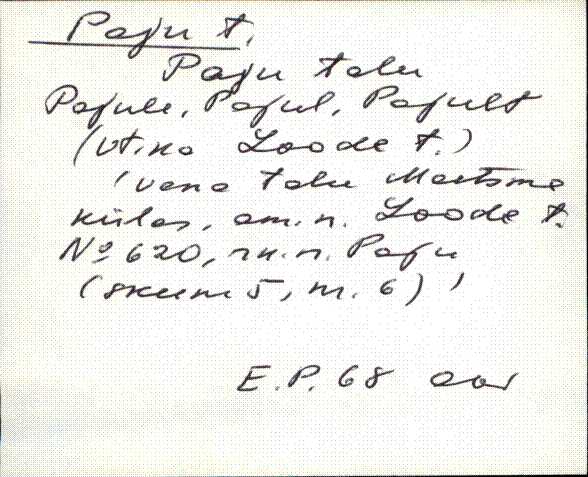 Paju t.
Paju talu
Pajule, Pajul, Pajult
(vt. ka Loode t.)
'vana talu Metsma
külas, am. n. Loode t.
№ 620, rk. n. Paju
(skeem 5, m. 6)'
E. P. 68